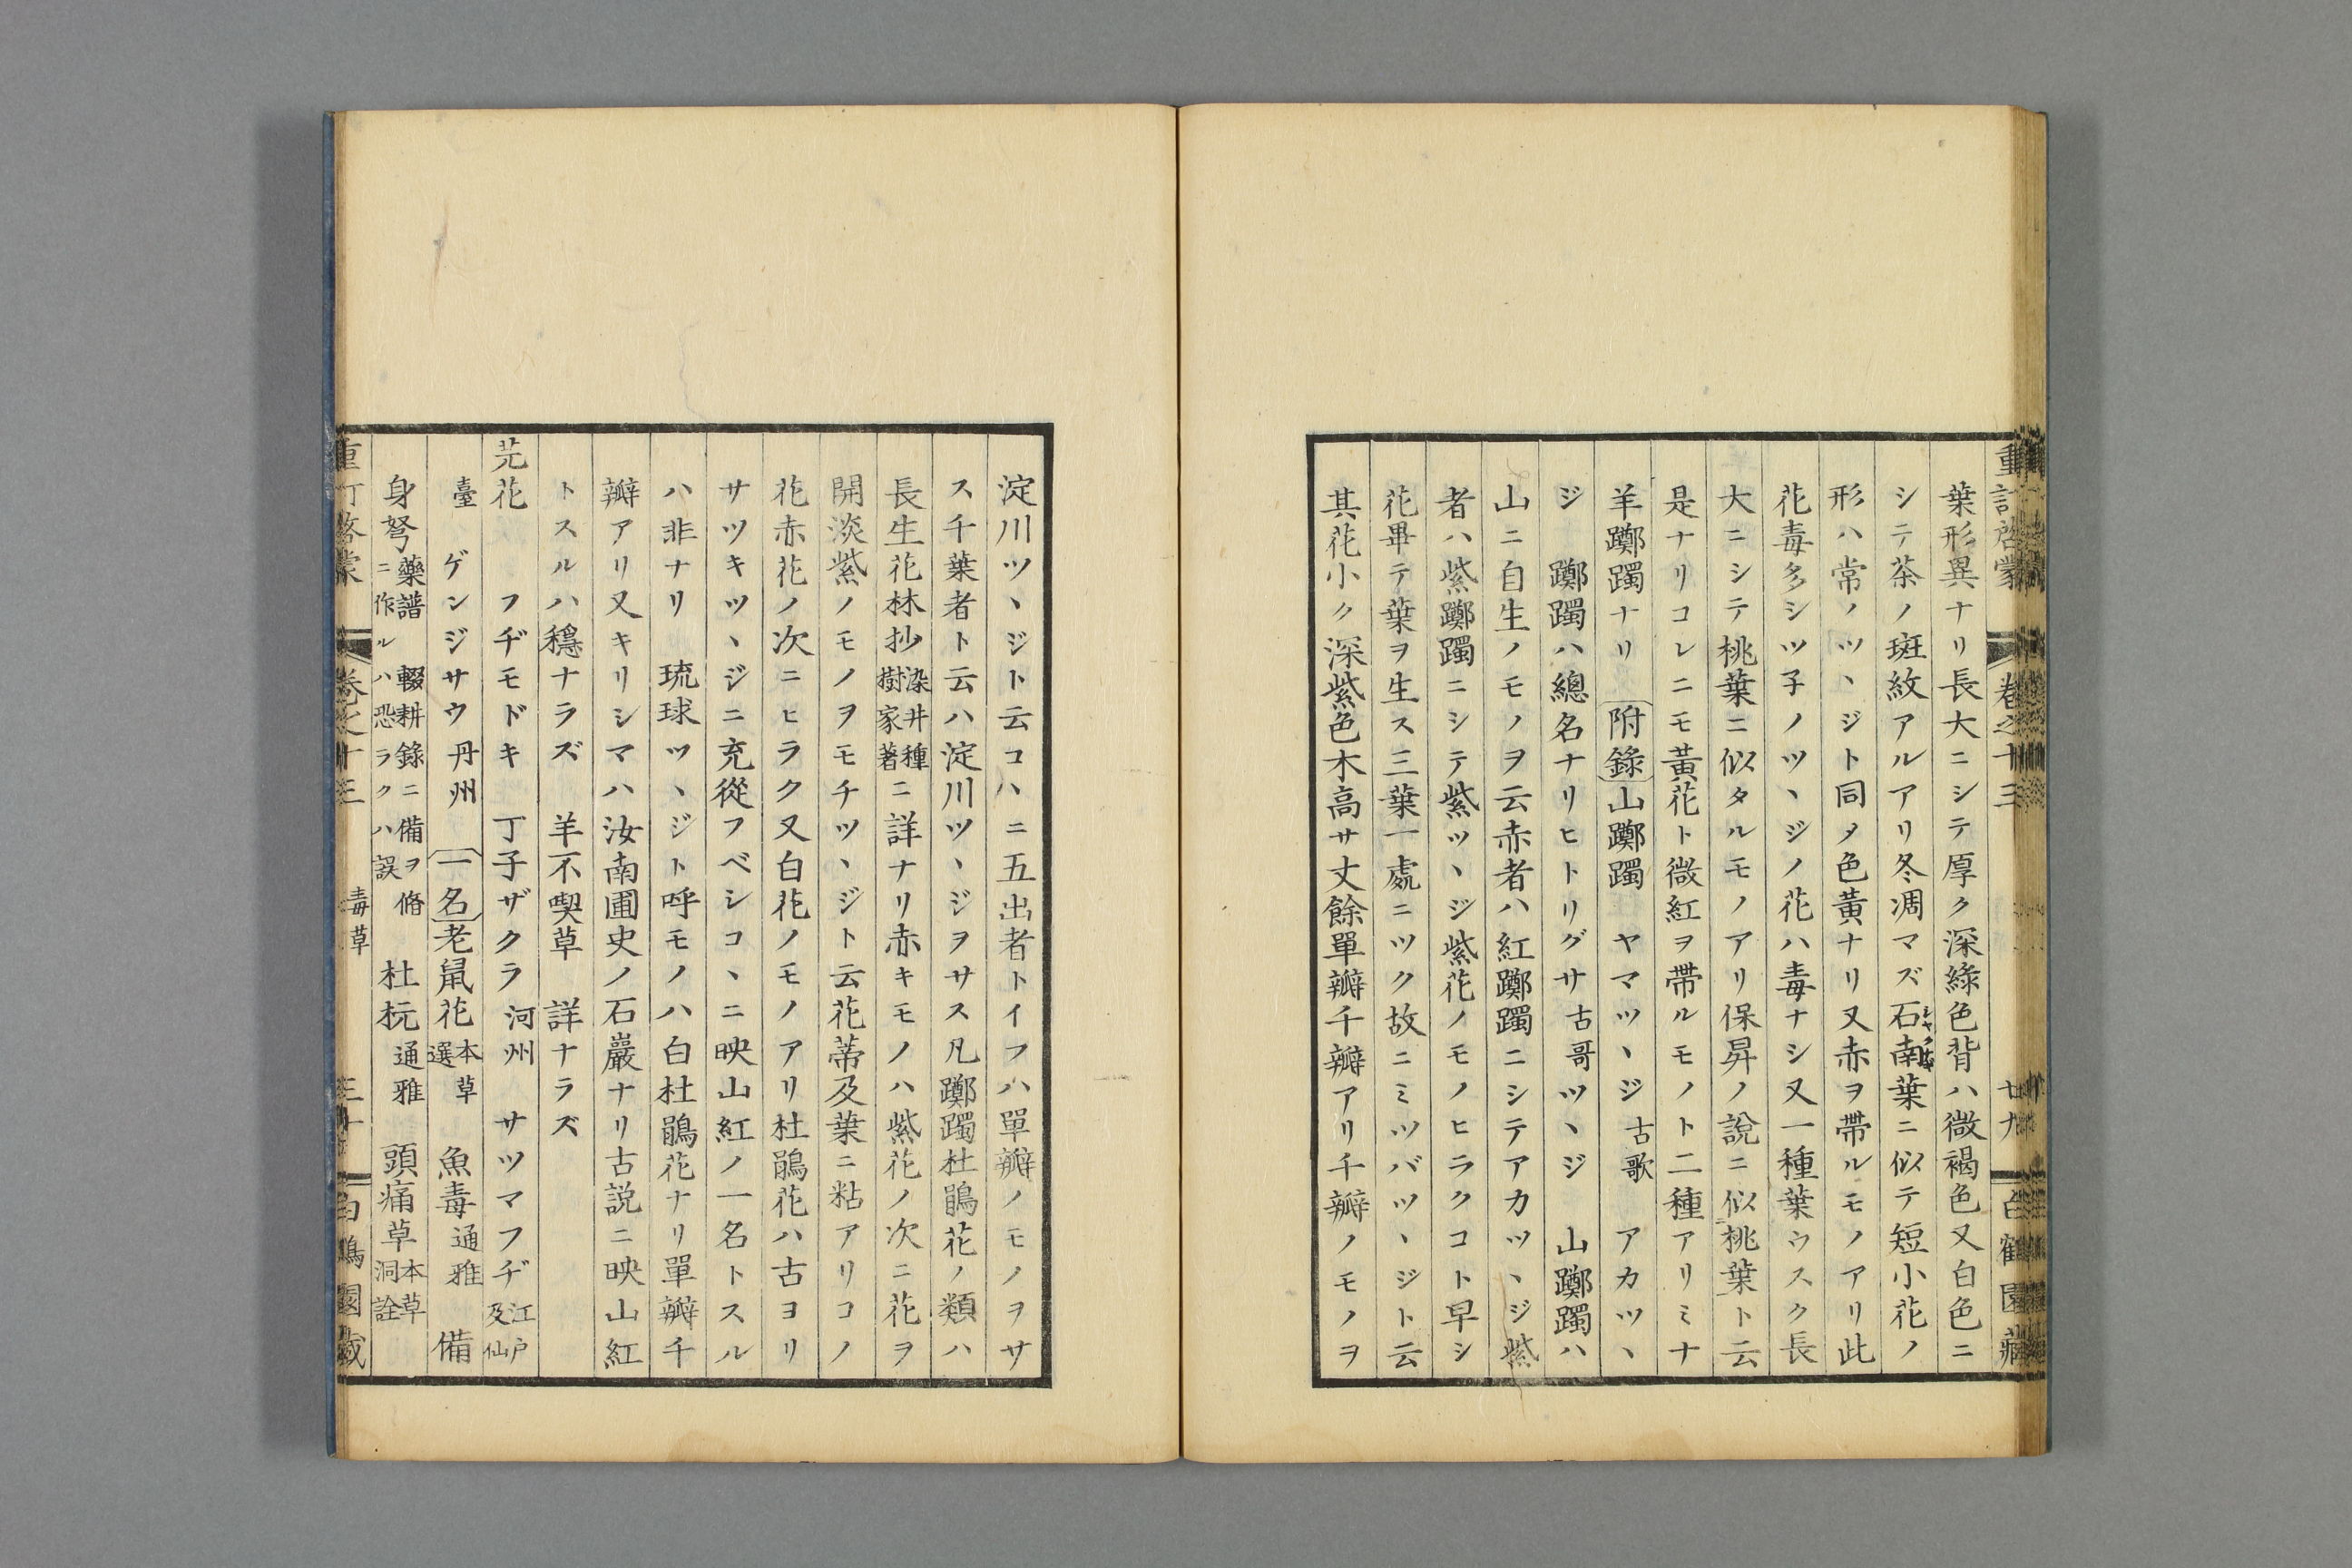 重訂啓蒙 卷之十三 廿九 白鶴園藏
葉形異ナリ長大ニシテ厚ク深緑色背ハ微褐色又白色ニ
シテ茶ノ斑紋アルアリ冬凋マズ石南葉ニ似テ短小花ノ
形ハ常ノツヽジト同メ色黃ナリ又赤ヲ帶ルモノアリ此
花毒多シツ子ノツヽジノ花ハ毒ナシ又一種葉ウスク長
大ニシテ桃葉ニ似タルモノアリ保昇ノ說ニ似桃葉ト云
是ナリコレニモ黃花ト微紅ヲ帶ルモノト二種アリミナ
羊躑躅ナリ 附錄 山躑躅 ヤマツヽジ古歌 アカツヽ
ジ 躑躅ハ總名ナリヒトリグサ古哥ツヽジ 山躑躅ハ
山ニ自生ノモノヲ云赤者ハ紅躑躅ニシテアカツヽジ紫
者ハ紫躑躅ニシテ紫ツヽジ紫花ノモノヒラクコト早シ
花畢テ葉ヲ生ス三葉一處ニツク故ニミツバツヽジト云
其花小ク深紫色木高サ丈餘單瓣千瓣アリ千瓣ノモノヲ
淀川ツヽジト云コハニ五出者トイフハ單瓣ノモノヲサ
ス千葉者ト云ハ淀川ツヽジヲサス凡躑躅杜鵑花ノ類ハ
長生花林抄染井種樹家著ニ詳ナリ赤キモノハ紫花ノ次ニ花ヲ
開淡紫ノモノヲモチツヽジト云花蒂及葉ニ粘アリコノ
花赤花ノ次ニヒラク又白花ノモノアリ杜鵑花ハ古ヨリ
サツキツヽジニ充從フベシコヽニ映山紅ノ一名トスル
ハ非ナリ 琉球ツヽジト呼モノハ白杜鵑花ナリ單瓣千
瓣アリ又キリシマハ汝南圃史ノ石巖ナリ古説ニ映山紅
トスルハ穩ナラズ 羊不喫草 詳ナラズ
芫花 フヂモドキ 丁子ザクラ河州 サツマフヂ江戸及仙
臺 ゲンジサウ丹州 一名 老鼠花本草選 魚毒通雅 備
身弩藥譜 輟耕錄ニ備ヲ脩ニ作ルハ恐ラクハ誤 杜杬通雅 頭痛草本草洞詮
重訂啓蒙 卷之十三 毒草 三十 白鶴園藏